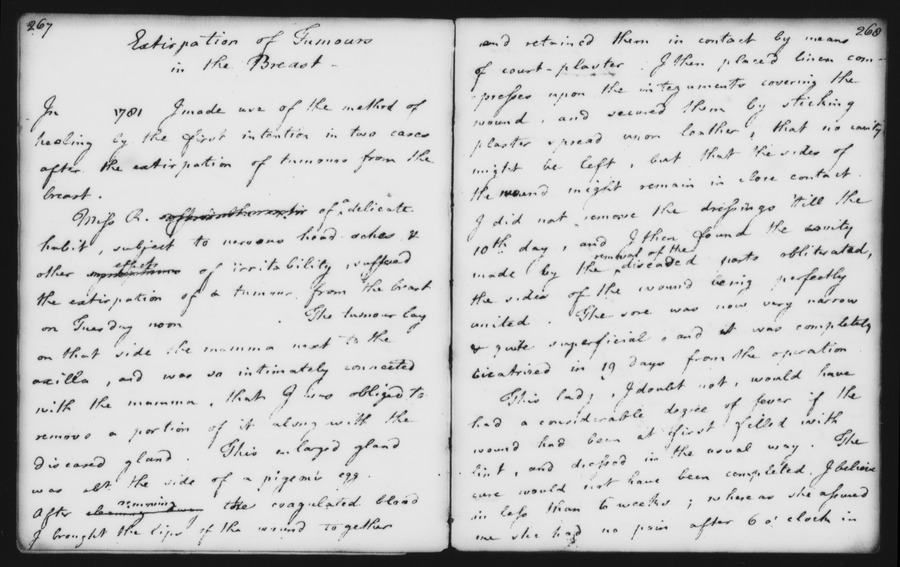 267
Extirpation of Tumours
in the Breast -
In 1781 I made use of the method of
healing by the first intention in two cases
after the extirpation of tumours from the
breast.
Miss R. of a delicate
habit, subject to nervous head-aches &
other effects of irritability, suffered
the extirpation of a tumour from the breast
on Tuesday noon . The tumour lay
on that side the mamma next to the
axilla, and was so intimately connected
with the mamma, that I was obliged to
remove a portion of it along with the
diseased gland. This enlarged gland
was abt. the size of a pigeon's egg.
After removing the coagulated blood
I brought the lips of the wound together
268
and retained them in contact by means
of court-plaster. I then placed linen com-
-presses upon the integuments covering the
wound, and secured them by sticking
plaster spread upon leather, that no cavity
might be left, but that the sides of
the wound might remain in close contact.
I did not remove the dressings 'till the
10th day, and I then found the cavity
made by the removal of the diseased parts obliterated,
the sides of the wound being perfectly
united. The sore was now very narrow
& quite superficial, and it was completely
cicatrised in 19 days from the operation.
This lady, I doubt not, would have
had a considerable degree of fever if the
wound had been at first filled with
lint, and dressed in the usual way. The
cure would not have been completed, I believe
in less than 6 weeks; whereas she assured
me she had no pain after 6 o'clock in